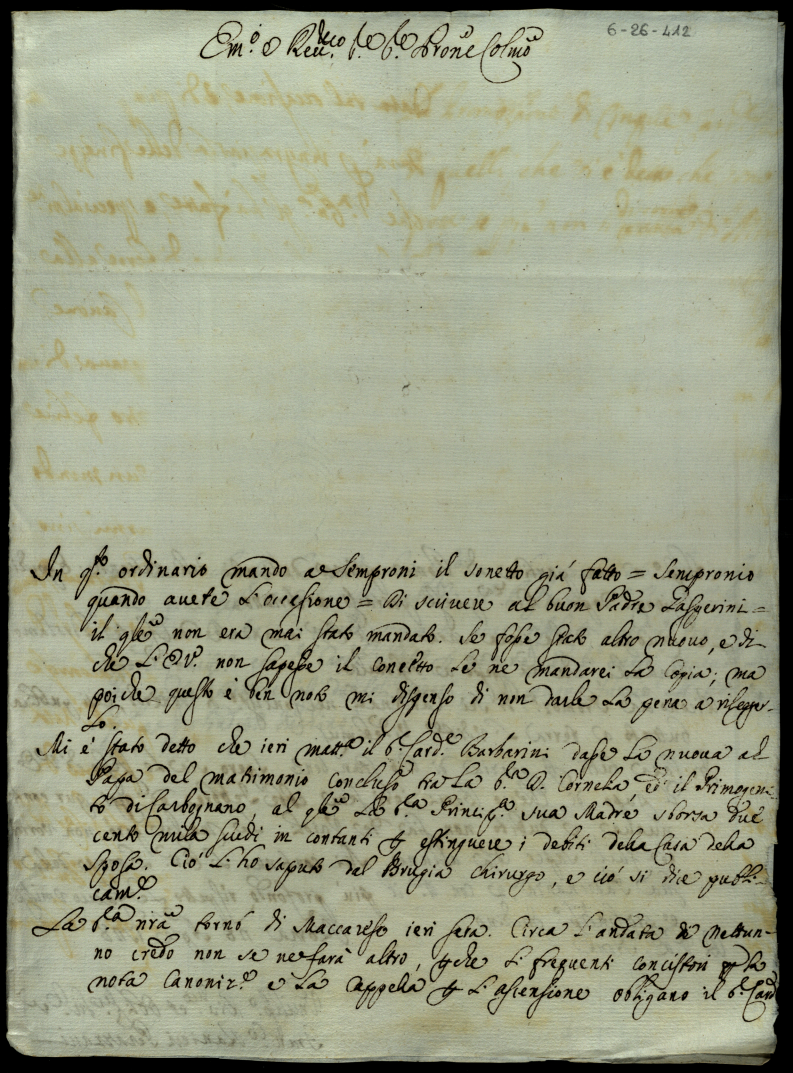 6-26-412
Em.o e Rev.mo S.re S.re Prone Colmo
In q.to ordinario mando a Semproni il sonetto già fatto = Sempronio
quando avete l'occasione = Di scrivere al buon Padre Gasperini =
il qle non era mai stato mandato. Se fosse stato altro nuovo, e di
che L'E.V. non sapesse il conetto Le ne mandarei La Copia; ma
poiche questo è ben noto mi dispenso di non darle La pena à rilegger-
Lo.
Mi è stato detto che ieri matt.a il S. Card.e Barbarini dasse La nuova al
Papa del matrimonio concluso tra La S.ra D. Cornelia, ed il Primogeni-
to di Carbognano, al qle La S.ra Princip.a sua Madre sborza due
cento mila scudi in contanti p estinguere i debiti della Casa della
Sposa. Ciò L'ho saputo dal Brugia chirurgo, e ciò si dice publi-
cam.te
La S.ra nra tornò di Maccarese ieri sera. Circa L'andata di Nettun-
no credo non se ne farà altro, pche Li frequenti concistori p la
nota Canoniz.e e La Cappella p L'ascensione obligano il S. Card